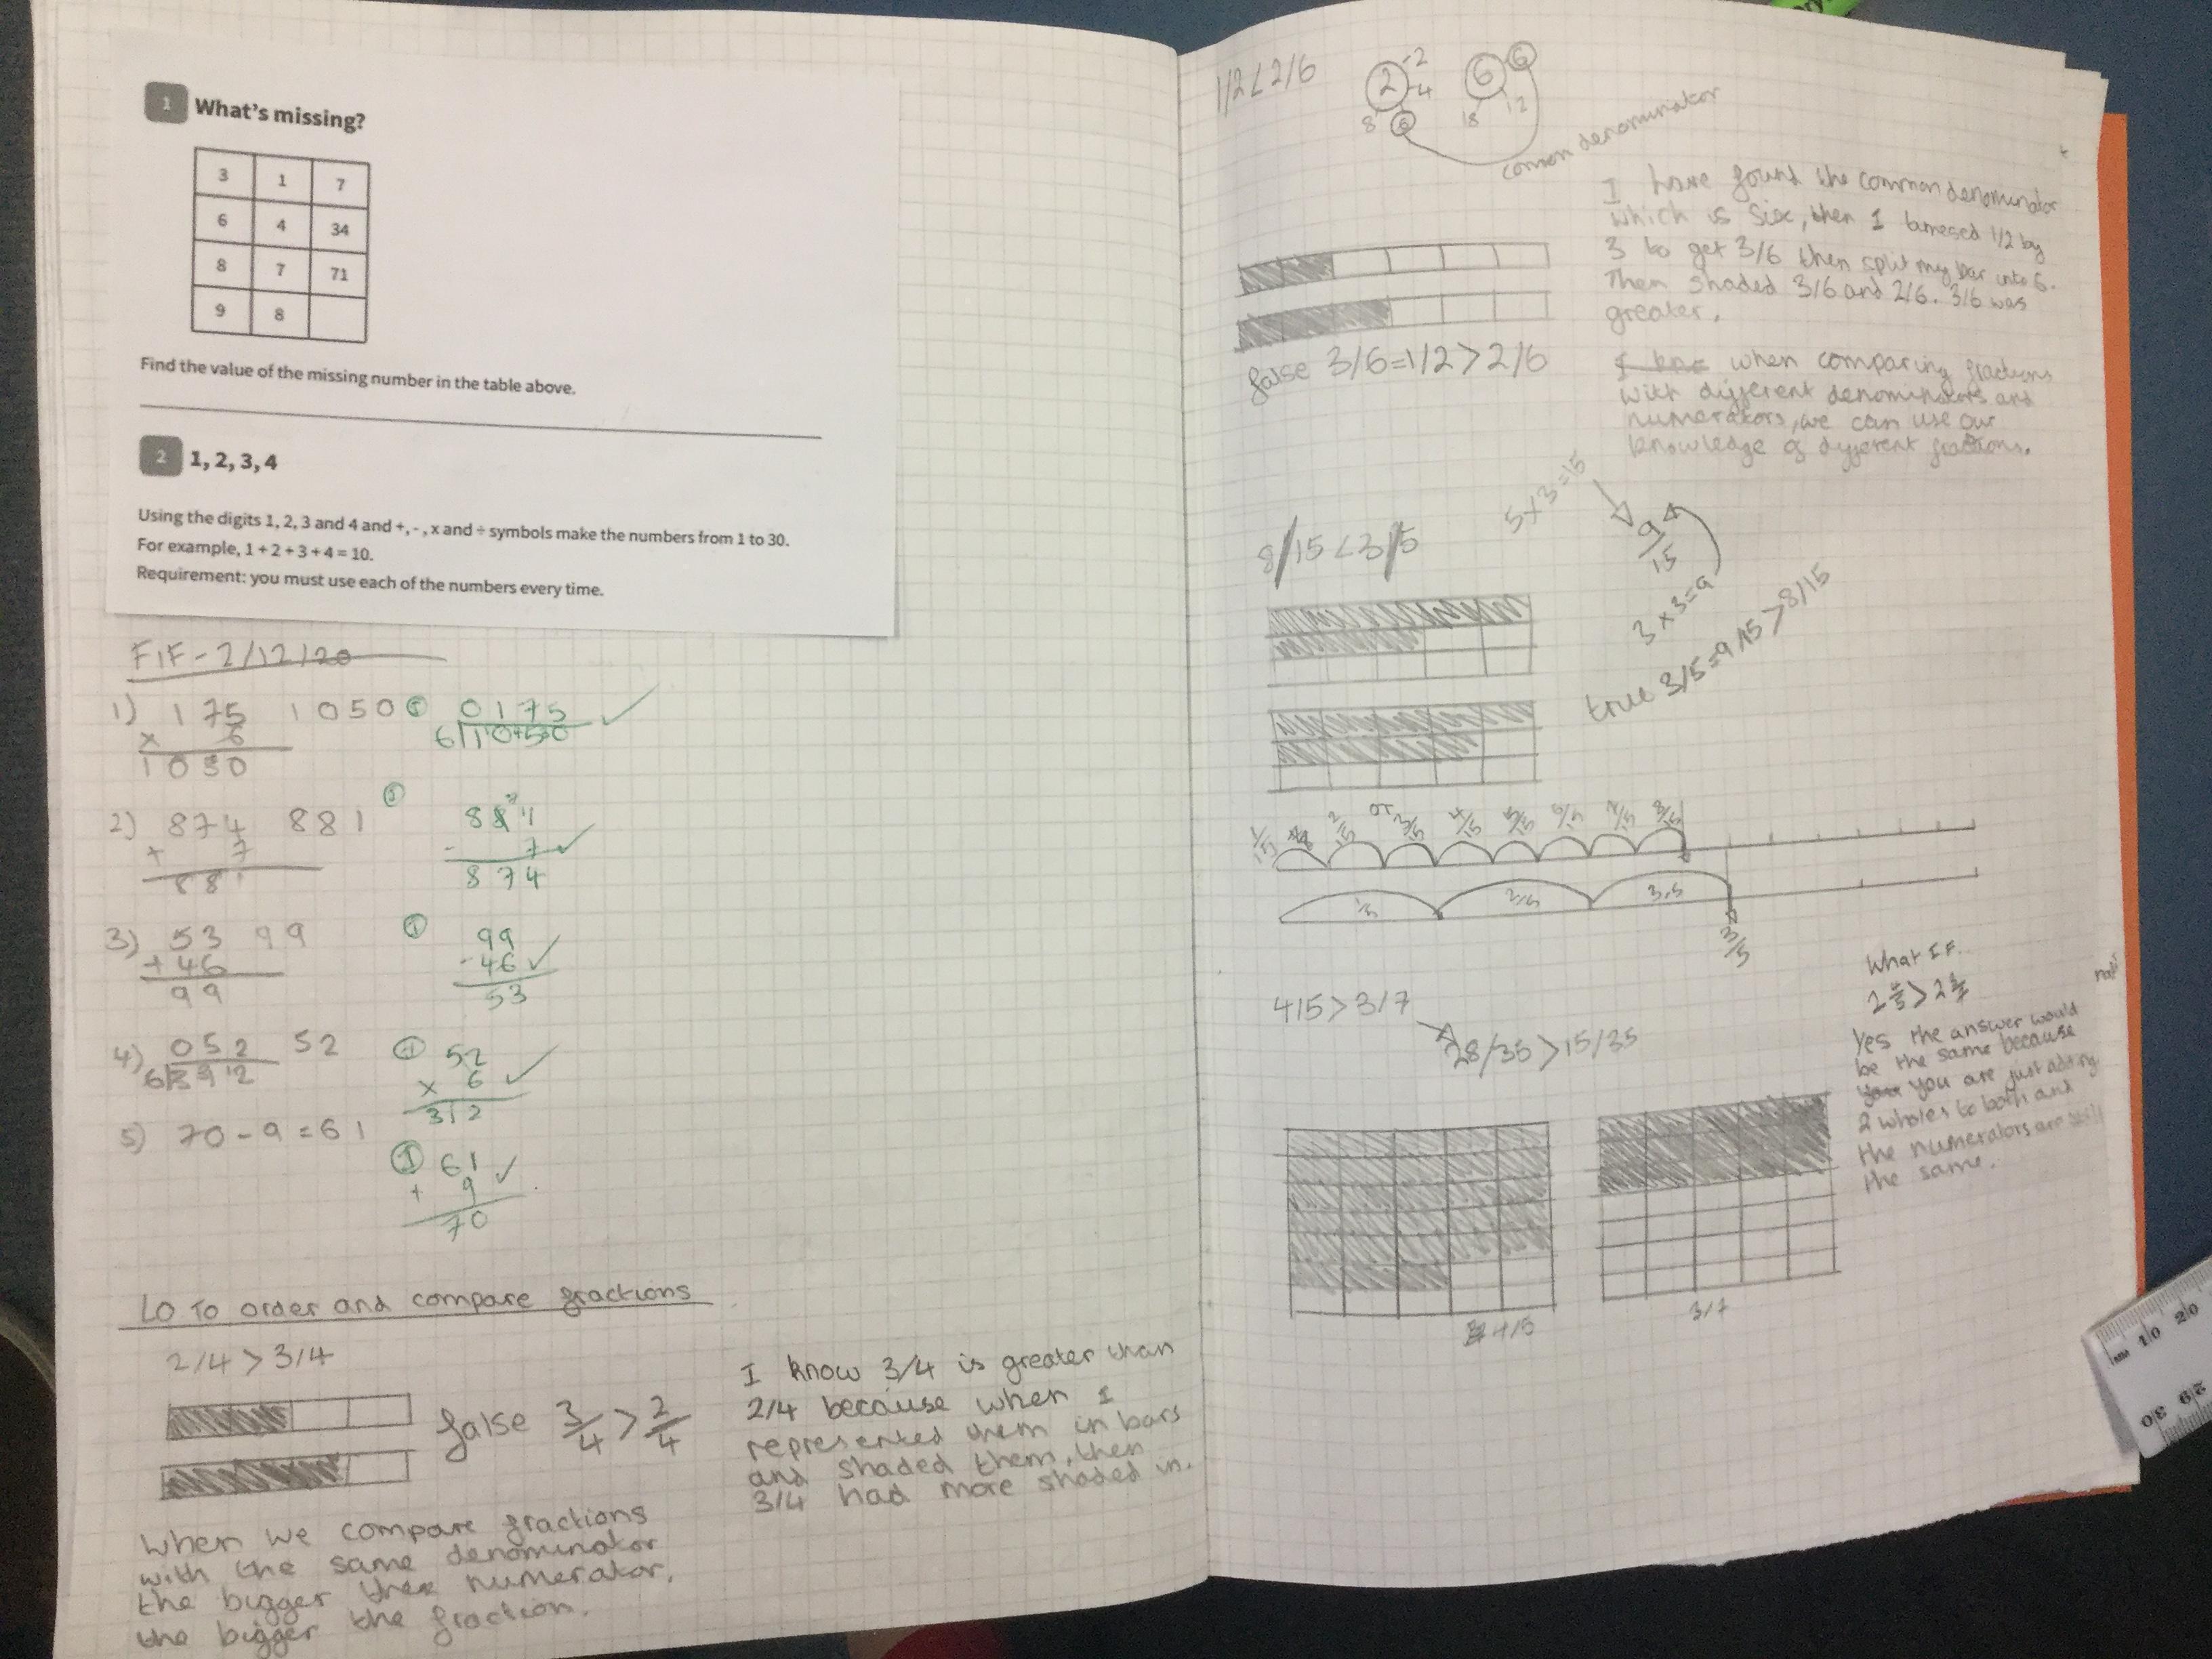 1 What's missing?
3 1 7
6 4 34
8 7 71
9 8
Find the value of the missing number in the table above.
2 1, 2, 3, 4
Using the digits 1, 2, 3 and 4 and +, - , x and ÷ symbols make the numbers from 1 to 30.
For example, 1 + 2 + 3 + 4 = 10.
Requirement: you must use each of the numbers every time.
FIF - 2/12/20
1) 175 1050
x 6
1050
0175
6
2) 874 881
+ 7
881
881
- 7
874
3) 53 99
+ 46
99
99
- 46
53
4) 052 52
6 312
52
x 6
312
5) 70 - 9 = 61
61
+ 9
70
LO To order and compare fractions
2/4 > 3/4
false 3/4 > 2/4
I know 3/4 is greater than
2/4 because when I
represented them in bars
and shaded them, then
3/4 had more shaded in.
When we compare fractions
with the same denominator
the bigger the numerator,
the bigger the fraction.
1/2 < 2/6
2 -2 -4 6 8
6 6 12 18
common denominator
I have found the common denominator
which is six, then I timesed 1/2 by
3 to get 3/6 then split my bar into 6.
Then shaded 3/6 and 2/6. 3/6 was
greater.
false 3/6 = 1/2 > 2/6
when comparing fractions
with different denominators and
numerators, we can use our
knowledge of different fractions.
8/15 < 3/5
5 x 3 = 15
9/15
3 x 3 = 9
true 3/5 = 9/15 > 8/15
or
1/15 2/15 3/15 4/15 5/15 6/15 7/15 8/15
1/5 2/5 3/5
3/5
4/5 > 3/7
28/35 > 15/35
4/5
3/7
What IF..
2 4/5 > 2 3/7
Yes the answer would
be the same because
you are just adding
2 wholes to both and
the numerators are still
the same.
mm 10 20
30 29